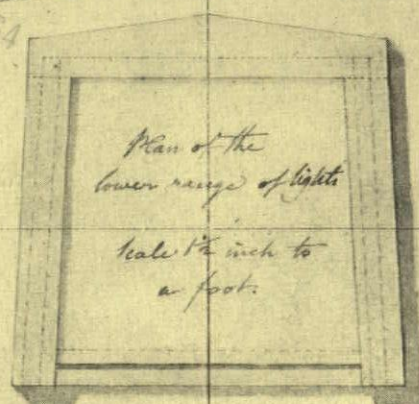 Plan of the
lower range of lights
Scale 1½ inch to
a foot.